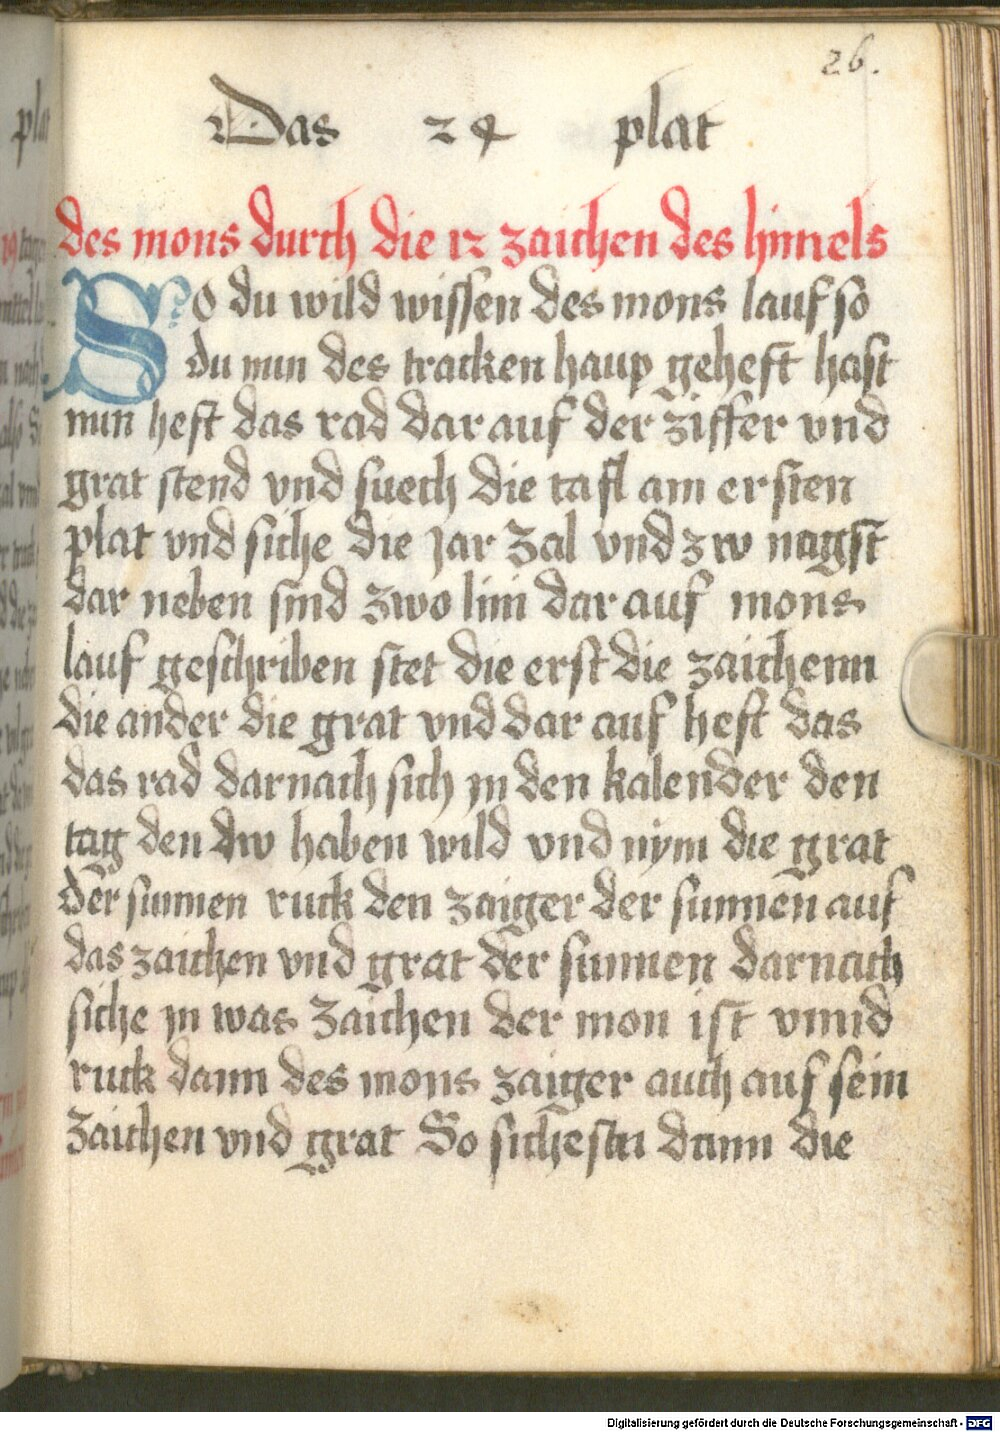 26.
Das 24 plat
des mons durch die 12 zaichen des himels
So du wild wissen des mons lauf so
du nun des tracken haup geheft hast
nun heft das rad dar auf der ziffer vnd
grat stend vnd suech die tafl am ersten
plat vnd siche die jar zal vnd zw nagst
dar neben sind zwo lini dar auf mons
lauf geschriben stet die erst die zaichenn
die ander die grat vnd dar auf heft das
das rad darnach sich jn den kalender den
tag den dw haben wild vnd nym die grat
der sunnen ruck den zaiger der sunnen auf
das zaichen vnd grat der sunnen darnach
siche jn was zaichen der mon ist vnnd
ruck dann des mons zaiger auch auf sein
zaichen vnd grat So sichestu dann die
Digitalisierung gefördert durch die Deutsche Forschungsgemeinschaft - DFG